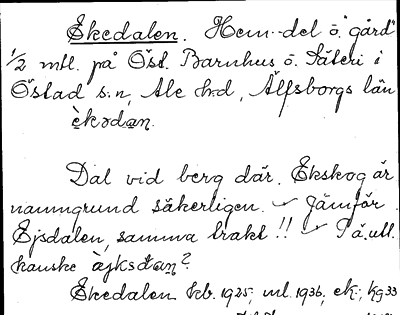 Ekedalen. Hem.-del o. "gård"
1/2 mtl. på Öst. Barnhus o. Säteri i
Östad s:n, Ale h:d, Älfsborgs län
èkədan.
Dal vid berg där. Ekskog är
namngrund säkerligen. – Jämför
Ejsdalen, samma trakt!! – På utt.
kanske àjksdan?
Ekedalen kb. 1925, ml. 1936, ek., kg 33